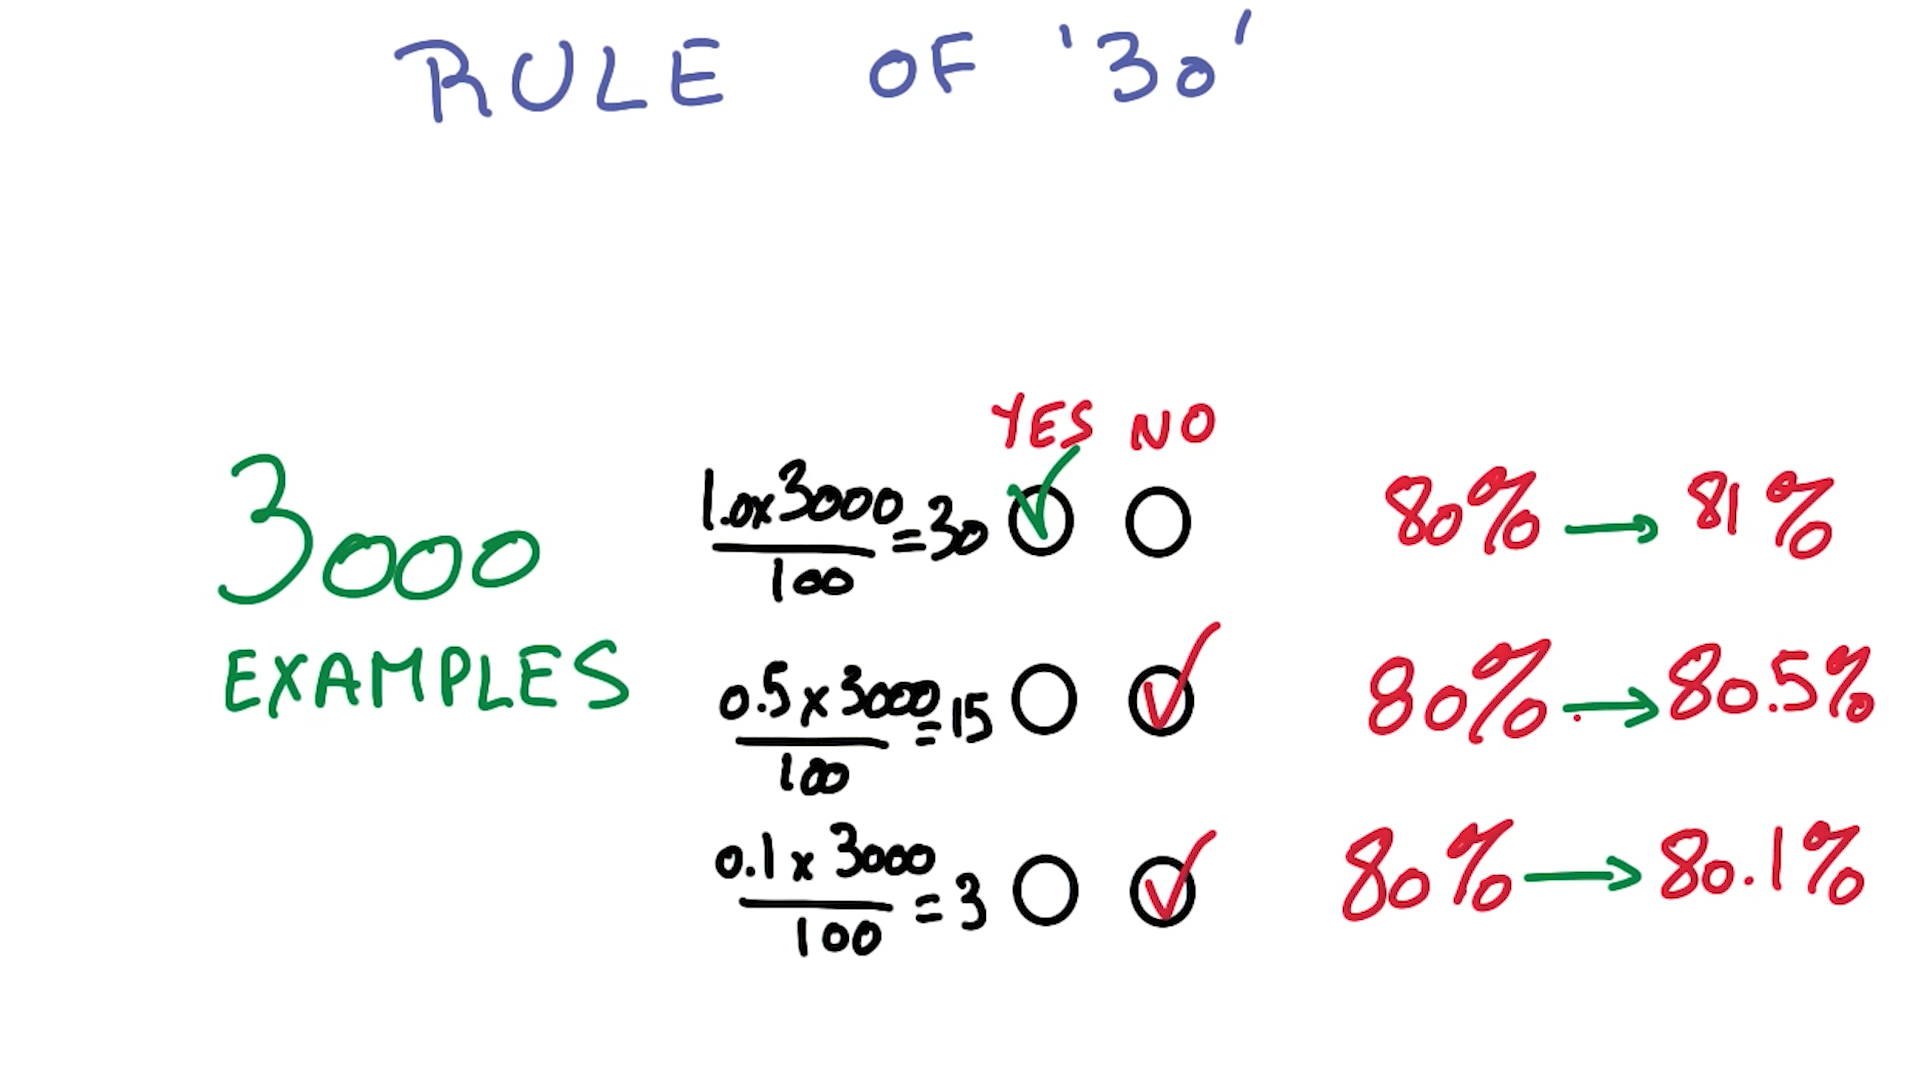 RULE OF '30'
YES NO
3000
EXAMPLES
1.0x3000
100
=30
80% → 81%
0.5 x 3000
100
=15
80% → 80.5%
0.1 x 3000
100
=3
80% → 80.1%